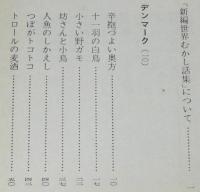 『新編世界むかし話集』について……………一
デンマーク（一〇）
辛抱づよい奥方……………一〇
十一羽の白鳥……………一三
小さい野ガモ……………二七
坊さんと小鳥……………三七
人魚のしかえし……………四二
つぼがトコトコ……………四三
トロールの麦酒……………五〇